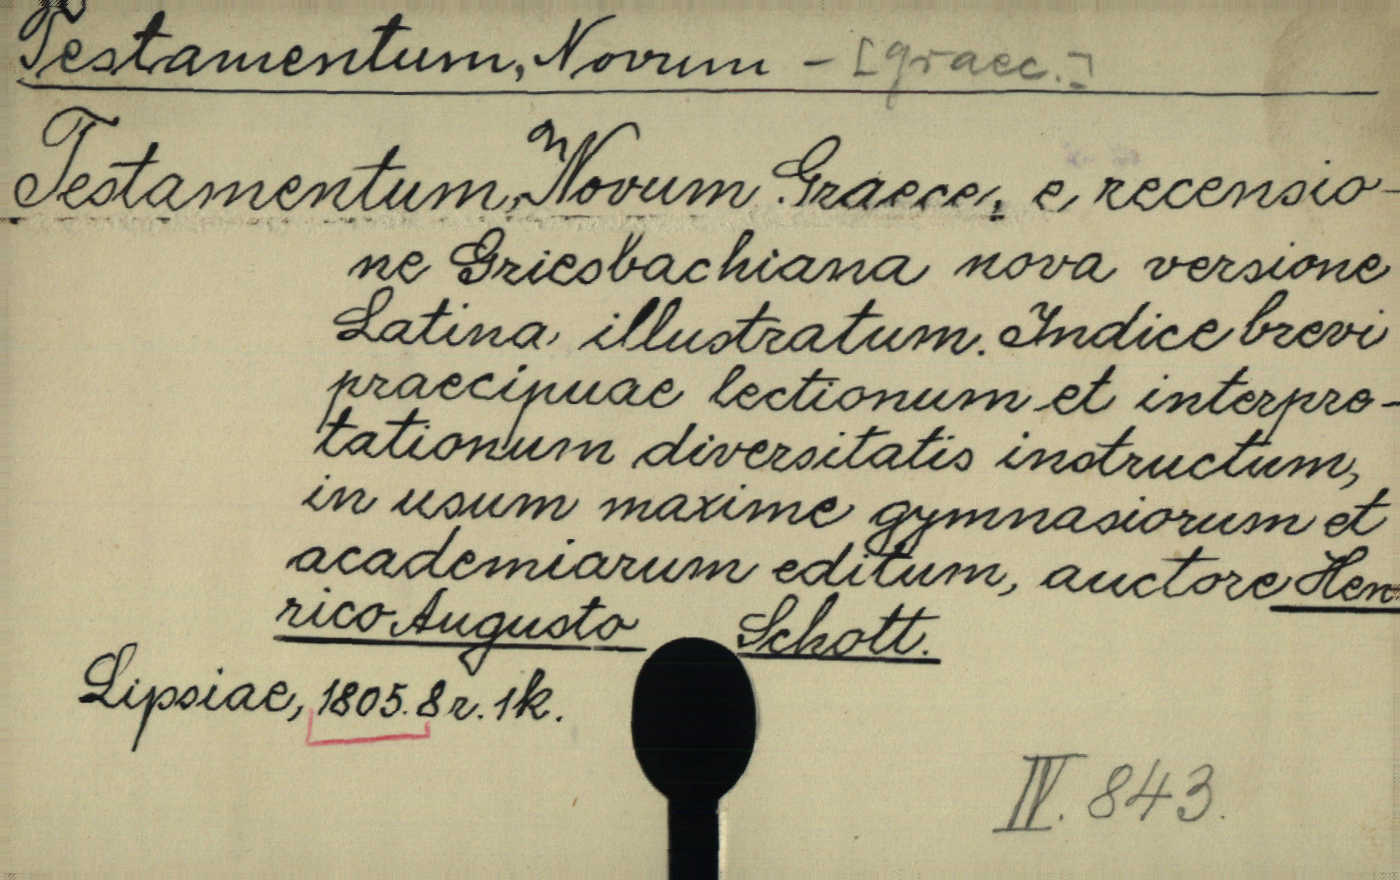 Testamentum, Novum - [graec.]
Testamentum, Novum Graece, e recensio-
ne Griesbachiana nova versione
Latina illustratum. Indice brevi
praecipuae lectionum et interpre-
tationum diversitatis instructum,
in usum maxime gymnasiorum et
academiarum editum, auctore Hen-
rico Augusto Schott.
Lipsiae, 1805. 8r. 1k.
IV. 843.